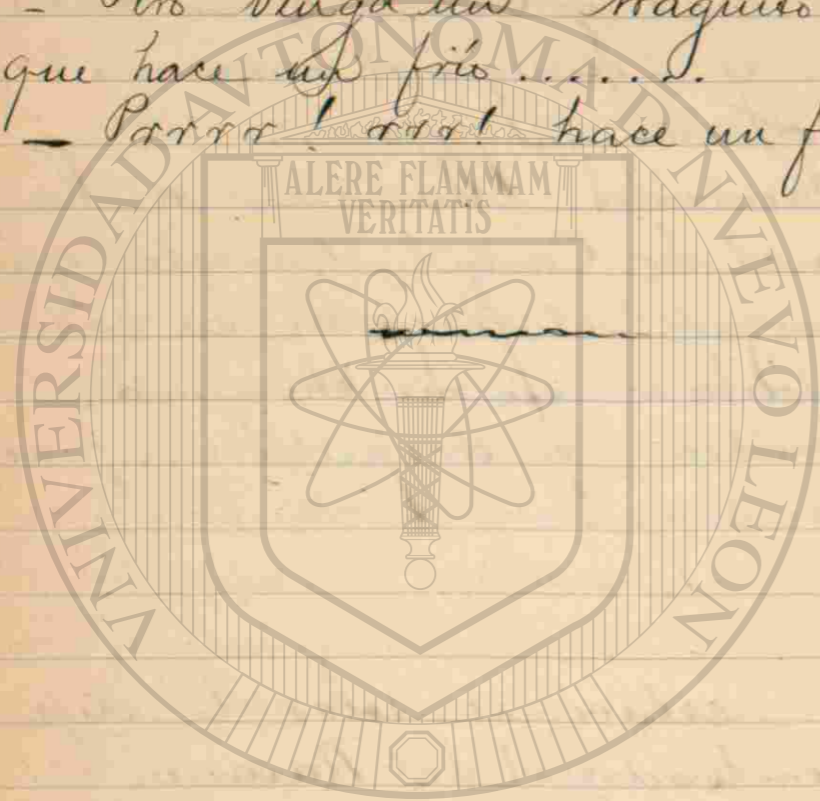 - Pero venga un traguito
que hace un frío.......
- Prrrr! rrr! hace un f
UNIVERSIDAD AUTONOMA DE NVEVO LEON
ALERE FLAMMAM
VERITATIS